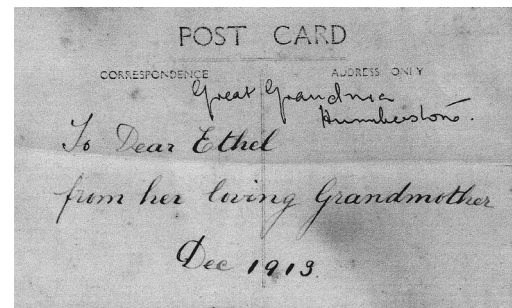 POST CARD
CORRESPONDENCE ADDRESS ONLY
Great Grandma
Humberstone.
To Dear Ethel
from her loving Grandmother
Dec 1913.